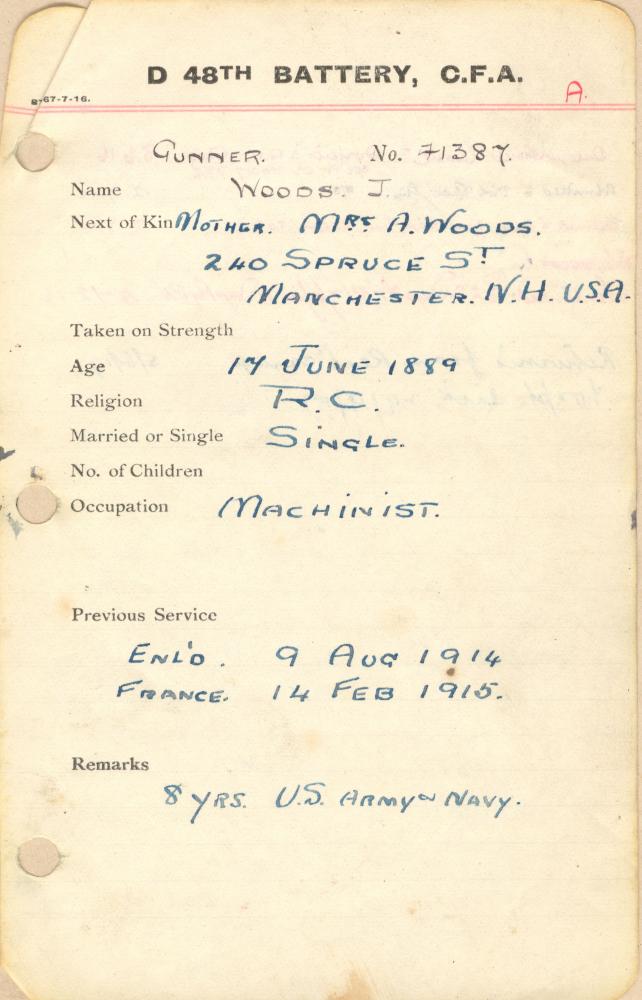 D 48TH BATTERY, C.F.A.
67-7-16.
A.
GUNNER. No. 71387.
Name WOODS. J.
Next of Kin MOTHER. MRS A. WOODS.
240 SPRUCE ST
MANCHESTER. N.H. U.S.A.
Taken on Strength
Age 17 JUNE 1889
Religion R.C.
Married or Single SINGLE.
No. of Children
Occupation MACHINIST.
Previous Service
ENL'D. 9 AUG 1914
FRANCE. 14 FEB 1915.
Remarks
8 YRS. U.S. ARMY & NAVY.